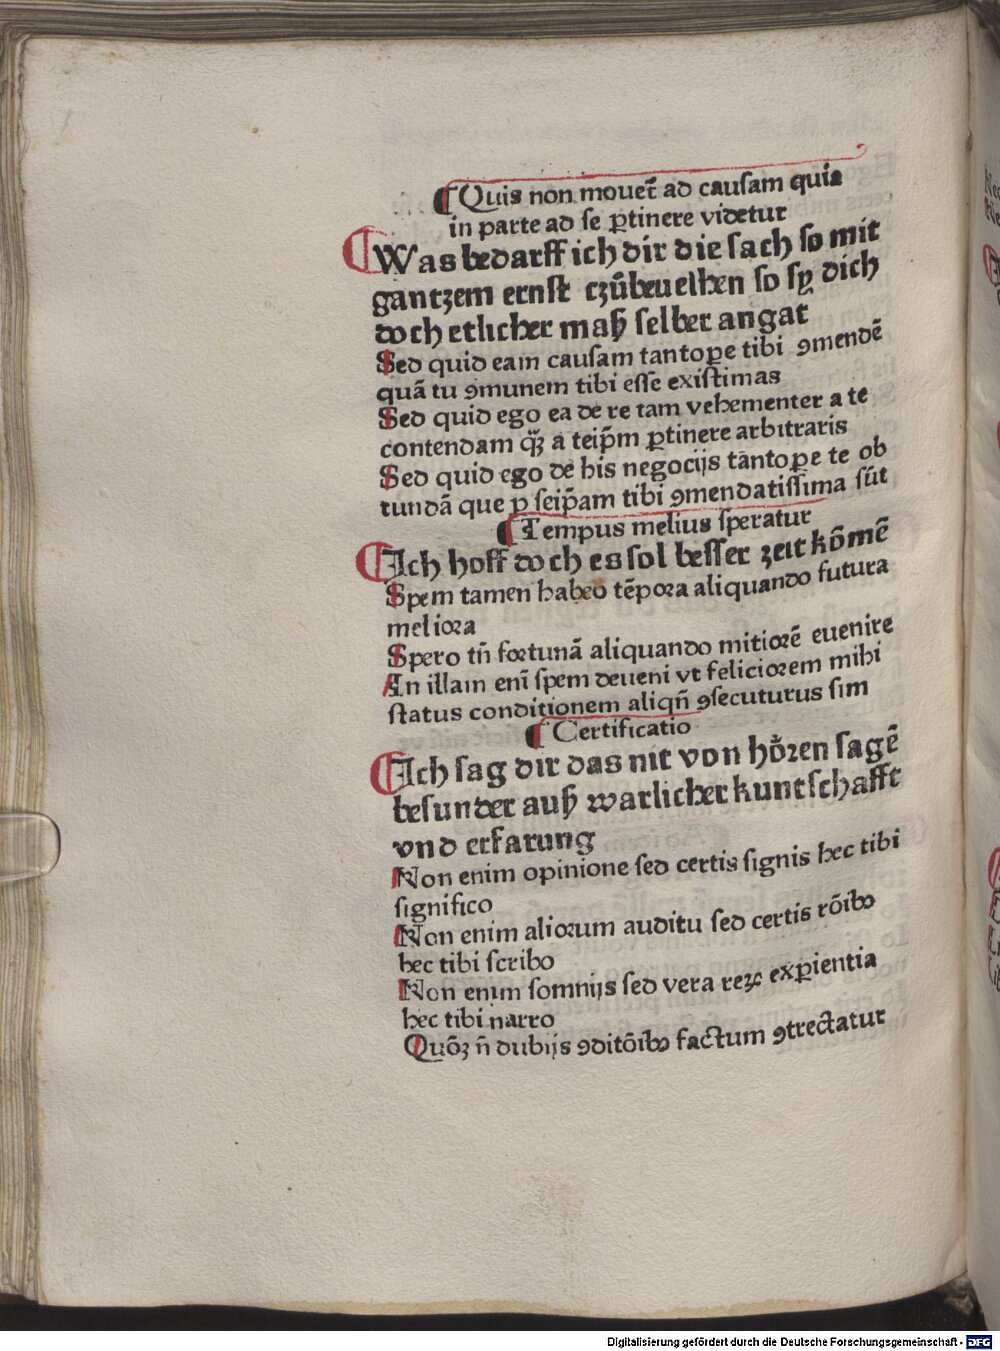 ¶ Quis non mouet᷑ ad cauſam quia
in parte ad ſe ꝑtinere videtur
¶ Was bedarff ich dir die ſach ſo mit
gantzem ernſt czů beuelhen ſo ſy dich
doch etlicher maß ſelber angat
Sed quid eam cauſam tantoꝑe tibi ꝯmendē
quā tu ꝯmunem tibi eſſe exiſtimas
Sed quid ego ea de re tam vehementer a te
contendam qꝫ̄ a teip̄m ꝑtinere arbitraris
Sed quid ego de his negocijs tantoꝑe te ob
tundā que ꝑ ſeip̄am tibi ꝯmendatiſſima ſūt
¶ Tempus melius ſperatur
¶ Ich hoff doch es ſol beſſer zeit kōmē
Spem tamen habeo tēpora aliquando futura
meliora
Spero tn̄ fortunā aliquando mitiorē euenire
In illam eni̅ ſpem deueni vt feliciorem mihi
ſtatus conditionem aliqn̄ ꝯſecuturus ſim
¶ Certificatio
¶ Ich ſag dir das nit von hoͤren ſagē
beſunder auß warlicher kuntſchafft
vnd erfarung
Non enim opinione ſed certis ſignis hec tibi
ſignifico
Non enim aliorum auditu ſed certis rōibꝫ
hec tibi ſcribo
Non enim ſomnijs ſed vera reꝝ exꝑientia
hec tibi narro
Quōꝫ n̄ dubijs ꝯditōibꝫ factum ꝯtrectatur
Digitalisierung gefördert durch die Deutsche Forschungsgemeinschaft - DFG